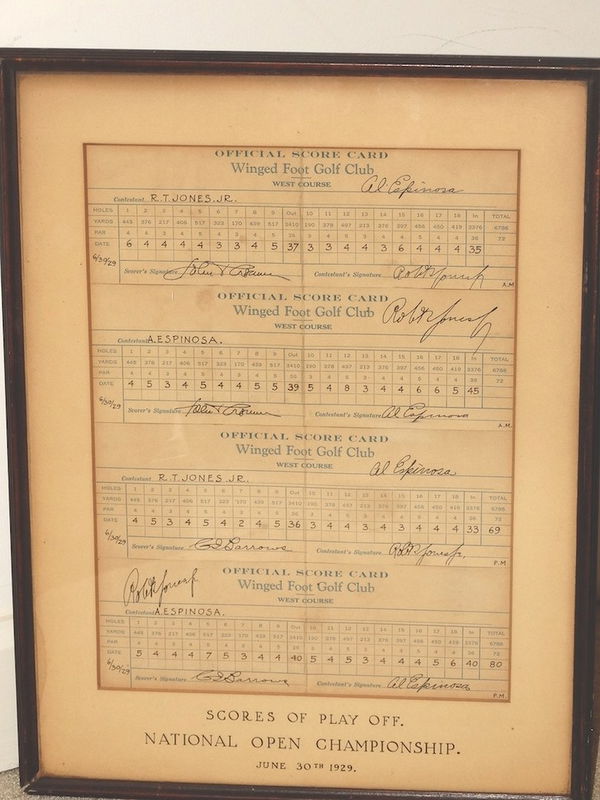 OFFICIAL SCORE CARD
Winged Foot Golf Club
WEST COURSE
Al Espinosa
Contestant R.T. JONES, JR.
HOLES 1 2 3 4 5 6 7 8 9 Out 10 11 12 13 14 15 16 17 18 In TOTAL
YARDS 445 376 217 406 517 323 170 439 517 3410 190 378 497 213 376 397 456 450 419 3376 6786
PAR 72
DATE 6 4 4 4 4 3 3 4 5 37 3 3 4 4 3 6 4 4 4 35
6/30/29
Scorer's Signature Contestant's Signature Robt T Jones Jr
A.M.
OFFICIAL SCORE CARD
Winged Foot Golf Club
WEST COURSE
Robt T Jones Jr
Contestant A. ESPINOSA.
HOLES 1 2 3 4 5 6 7 8 9 Out 10 11 12 13 14 15 16 17 18 In TOTAL
YARDS 445 376 217 406 517 323 170 439 517 3410 190 378 497 213 376 397 456 450 419 3376 6786
PAR 72
DATE 4 5 3 4 5 4 4 5 5 39 5 4 8 3 4 4 6 6 5 45
6/30/29
Scorer's Signature Contestant's Signature Al Espinosa
A.M.
OFFICIAL SCORE CARD
Winged Foot Golf Club
WEST COURSE
Al Espinosa
Contestant R.T. JONES, JR.
HOLES 1 2 3 4 5 6 7 8 9 Out 10 11 12 13 14 15 16 17 18 In TOTAL
YARDS 445 376 217 406 517 323 170 439 517 3410 190 378 497 213 376 397 456 450 419 3376 6786
PAR 72
DATE 4 5 3 4 5 4 2 4 5 36 3 4 4 3 4 3 4 4 4 33 69
6/30/29
Scorer's Signature Barrows Contestant's Signature Robt T Jones Jr.
P.M.
OFFICIAL SCORE CARD
Winged Foot Golf Club
WEST COURSE
Robt T Jones Jr
Contestant A. ESPINOSA.
HOLES 1 2 3 4 5 6 7 8 9 Out 10 11 12 13 14 15 16 17 18 In TOTAL
YARDS 445 376 217 406 517 323 170 439 517 3410 190 378 497 213 376 397 456 450 419 3376 6786
PAR 72
DATE 5 4 4 4 7 5 3 4 4 40 5 4 5 3 4 4 4 5 6 40 80
6/30/29
Scorer's Signature Barrows Contestant's Signature Al Espinosa
P.M.
SCORES OF PLAY OFF.
NATIONAL OPEN CHAMPIONSHIP.
JUNE 30TH 1929.